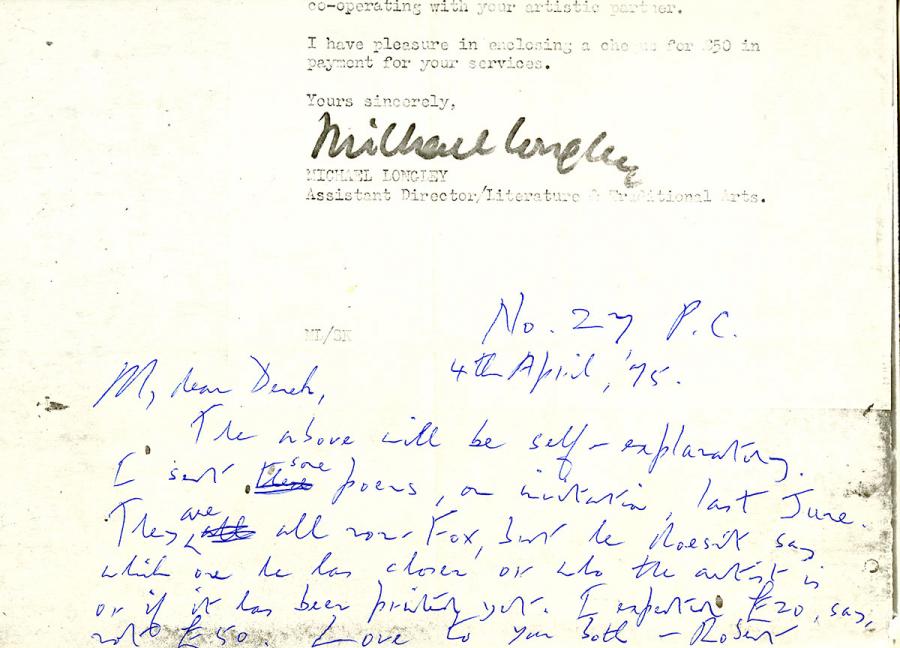 co-operating with your artistic partner.
I have pleasure in enclosing a cheque for £50 in
payment for your services.
Yours sincerely,
Michael Longley
MICHAEL LONGLEY
Assistant Director/Literature & Traditional Arts.
ML/SK
No. 27 P.C.
4th April, '75.
My dear Derek,
The above will be self-explanatory.
I sent some poems, on invitation, last June.
They are all non-Fox, but he doesn't say
which one he has chosen or who the artist is
or if it has been printed yet. I expected £20, say,
not £50. Love to you both - Robert